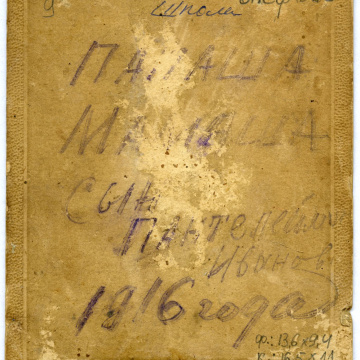 у
Школы
ПАПАША
МАМАША
СЫН
ПАНТЕЛЕЙМ
Иванов
1916 года
Ф.: 13,6 х 9,4
К.: 16,5 х 11